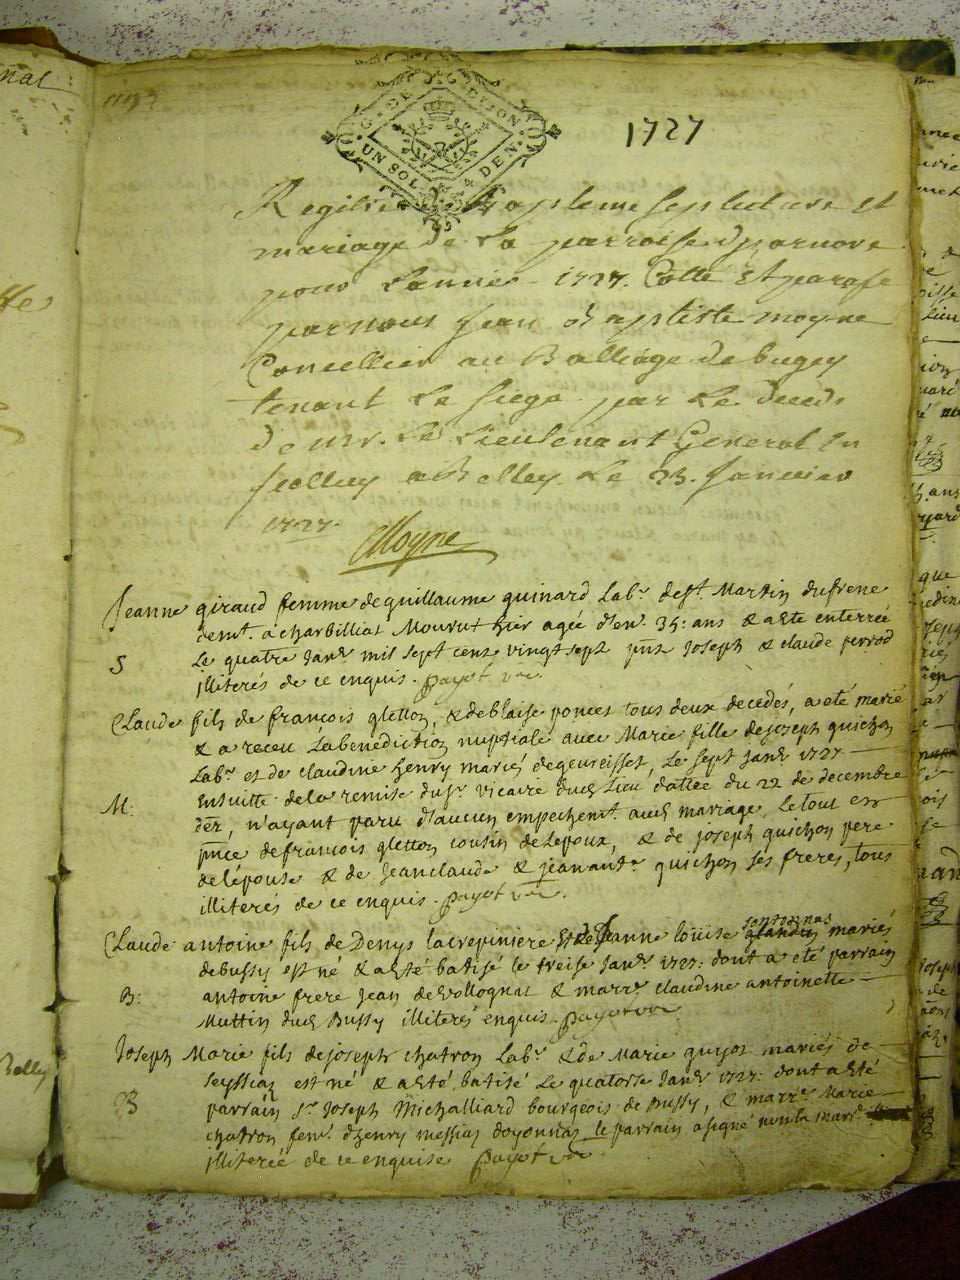 1727
G. DE DIJON
UN SOL 4 DEN.
Registre Bapteme sepulture et
mariage de La parroisse d'izarnore
pour Lannée 1727. Cotte et parafe
par nous Jean Baptiste moyne
Concellier au Balliage de bugey
tenant Le siege par Le deceds
de mr. Le Lieutenant General
a Belley Le 23. Janvier
1727.
Moyne
Jeanne giraud femme de guillaume guinard Labr. de st. Martin dufrene
demt. a charbilliat Mourut hier agée d'env. 35: ans & a esté enterrée
S Le quatre Janr. mil sept cens vingt sept pnts Joseph & claude perrod
illiterés de ce enquis. payot vre.
Claude fils de francois gletton, & de blaise poncet tous deux decedés, a eté marié
& a receu La benediction nuptiale avec Marie fille de joseph guichon
Labr. et de claudine henry mariés de geureisset, Le sept Janr. 1727
M: Ensuitte de la remise du sr. vicaire dud. Lieu dattée du 22 de decembre
der, n'ayant paru d'aucun empechemt. aud. mariage, Le tout en
pnce de francois gletton cousin de Lepoux, & de joseph guichon pere
de lépouse & de Jeanclaude & jean antne. guichon ses freres, tous
illiterés de ce enquis. payot vre.
santonnas
Claude antoine fils de Denys lacrepiniere & de Jeanne loüise mariés
de bussy est né & a esté batisé le treise Janr. 1727: dont a eté parrain
B: antoine frere jean de vollognat & marre. claudine antoinette
Muttin dud. Bussy illiterés enquis. payot vre
Joseph Marie fils de joseph chatron Labr. & de Marie guyot mariés de
seyssiat est né & a esté batisé Le quatorse Janr. 1727: dont a esté
B parrain sr. Joseph Michalliard bourgeois de Bussy, & marre. Marie
chatron fem. d'henry messiat doyonnas le parrain a signé non la marre.
illiterée de ce enquise payot vre